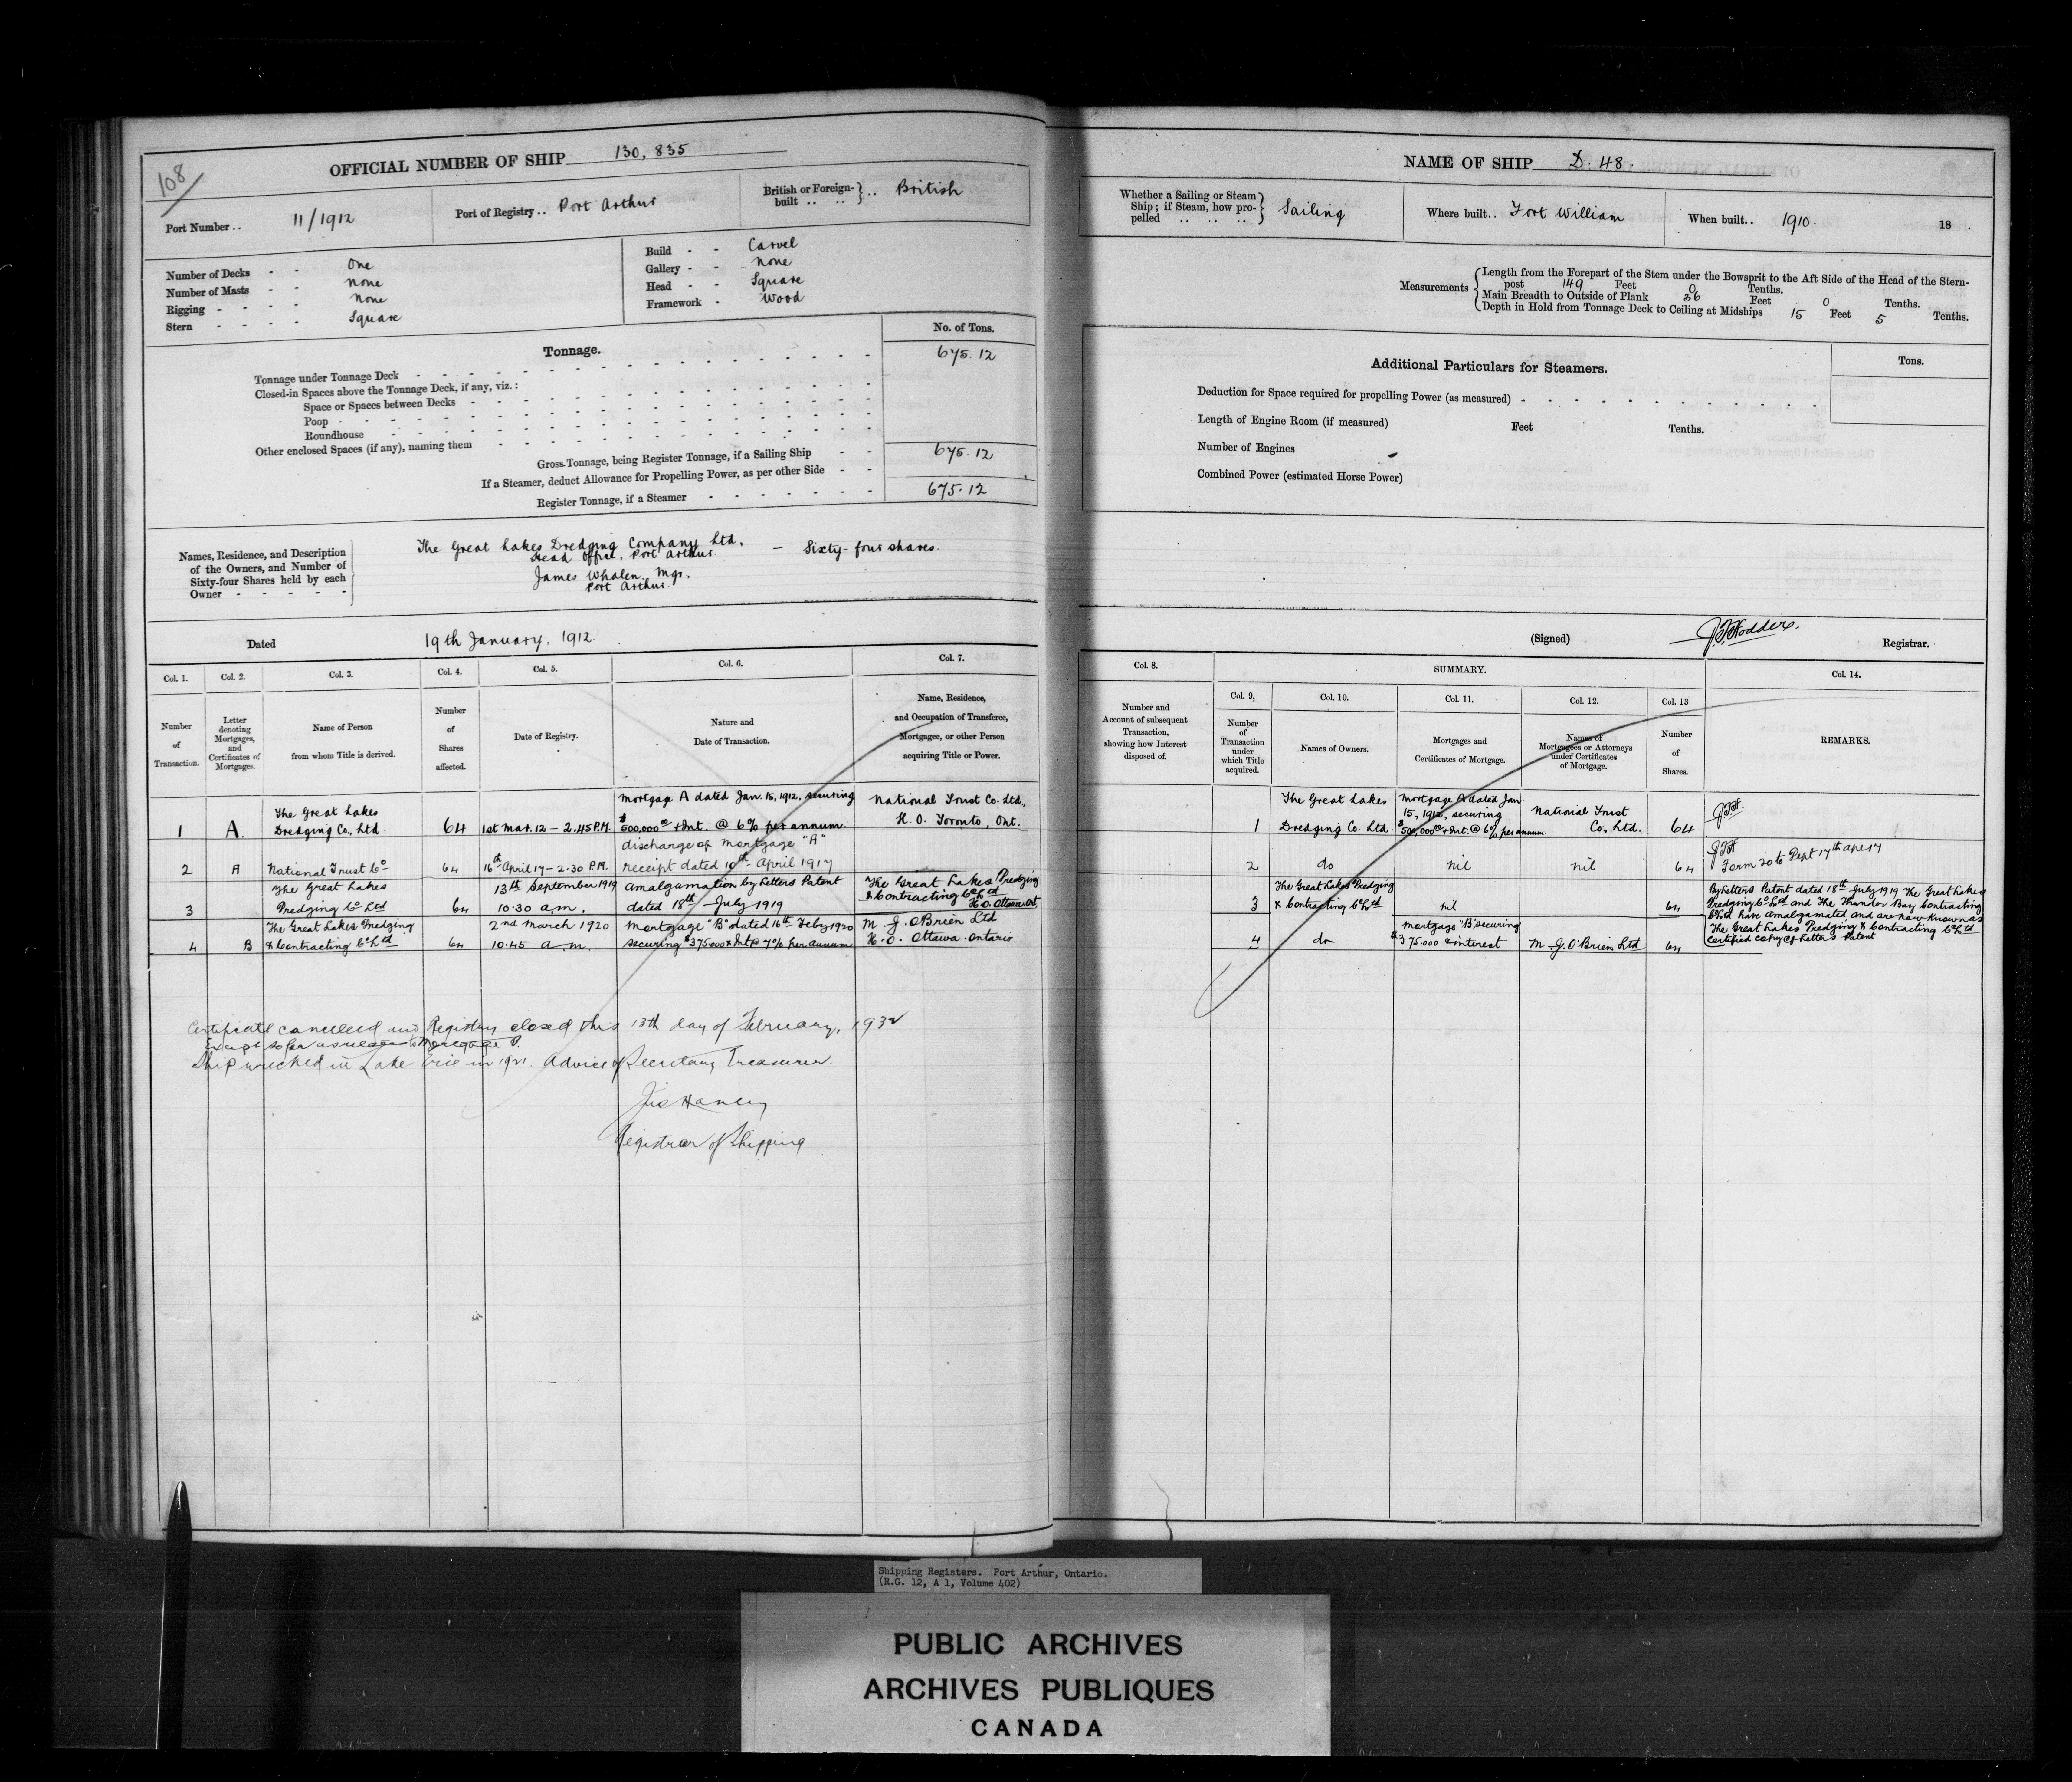 108
OFFICIAL NUMBER OF SHIP 130,835
Port Number .. 11/1912
Port of Registry .. Port Arthur
British or Foreign-built .. .. } .. British
Number of Decks - - One
Number of Masts - - None
Rigging - - - - None
Stern - - - - Square
Build - - Carvel
Gallery - - None
Head - - Square
Framework - Wood
No. of Tons.
Tonnage.
Tonnage under Tonnage Deck 675.12
Closed-in Spaces above the Tonnage Deck, if any, viz.:
Space or Spaces between Decks
Poop
Roundhouse
Other enclosed Spaces (if any), naming them
Gross Tonnage, being Register Tonnage, if a Sailing Ship 675.12
If a Steamer, deduct Allowance for Propelling Power, as per other Side
Register Tonnage, if a Steamer 675.12
Names, Residence, and Description
of the Owners, and Number of
Sixty-four Shares held by each
Owner - - - - -
The Great Lakes Dredging Company Ltd. — Sixty-four shares.
Head Office, Port Arthur
James Whalen, Mgr.
Port Arthur
Dated 19th January, 1912.
Col. 1. Col. 2. Col. 3. Col. 4. Col. 5. Col. 6. Col. 7.
Number of Transaction.
Letter denoting Mortgages, and Certificates of Mortgages.
Name of Person from whom Title is derived.
Number of Shares affected.
Date of Registry.
Nature and Date of Transaction.
Name, Residence, and Occupation of Transferee, Mortgagee, or other Person acquiring Title or Power.
1 A. The Great Lakes Dredging Co., Ltd. 64 1st Mar. 12 – 2.45 P.M. Mortgage A dated Jan. 15, 1912, securing $500,000.00 & Int. @ 6% per annum. National Trust Co. Ltd., H.O. Toronto, Ont.
2 A National Trust Co 64 16th April 17 – 2.30 P.M. discharge of Mortgage "A" receipt dated 10th April 1917
3 The Great Lakes Dredging Co Ltd 64 13th September 1919 10.30 a.m. Amalgamation by Letters Patent dated 18th July 1919 The Great Lakes Dredging & Contracting Co Ltd H.O. Ottawa Ont
4 B The Great Lakes Dredging & Contracting Co Ltd 64 2nd March 1920 10.45 a.m. Mortgage "B" dated 16th Feby 1920 securing $375000 & Int @ 7% per annum M. J. O'Brien Ltd H.O. Ottawa Ontario
Certificate cancelled and Registry closed this 13th day of February, 1932
Except so far as relates to Mortgage B.
Ship wrecked in Lake Erie in 1921. Advice of Secretary Treasurer.
Registrar of Shipping
NAME OF SHIP D. 48.
Whether a Sailing or Steam Ship; if Steam, how propelled .. .. .. } Sailing
Where built .. Fort William
When built .. 1910. 18 .
Measurements
Length from the Forepart of the Stem under the Bowsprit to the Aft Side of the Head of the Stern-
post 149 Feet 0 Tenths.
Main Breadth to Outside of Plank 36 Feet 0 Tenths.
Depth in Hold from Tonnage Deck to Ceiling at Midships 15 Feet 5 Tenths.
Additional Particulars for Steamers.
Tons.
Deduction for Space required for propelling Power (as measured)
Length of Engine Room (if measured) Feet Tenths.
Number of Engines
Combined Power (estimated Horse Power)
(Signed) Registrar.
Col. 8. SUMMARY. Col. 14.
Col. 9. Col. 10. Col. 11. Col. 12. Col. 13
Number and Account of subsequent Transaction, showing how Interest disposed of.
Number of Transaction under which Title acquired.
Names of Owners.
Mortgages and Certificates of Mortgage.
Names of Mortgagees or Attorneys under Certificates of Mortgage.
Number of Shares.
REMARKS.
1 The Great Lakes Dredging Co. Ltd Mortgage A dated Jan 15, 1912, securing $500,000.00 & Int. @ 6% per annum National Trust Co., Ltd. 64
2 do nil nil 64
3 The Great Lakes Dredging & Contracting Co Ltd nil 64 By Letters Patent dated 18th July 1919 The Great Lakes
Dredging Co Ltd and The Thunder Bay Contracting
Co Ltd have amalgamated and are now known as
The Great Lakes Dredging & Contracting Co Ltd
Certified copy of Letters Patent
4 do Mortgage "B" securing $375000 & interest M. J. O'Brien Ltd 64
Shipping Registers. Port Arthur, Ontario.
(R.G. 12, A 1, Volume 402)
PUBLIC ARCHIVES
ARCHIVES PUBLIQUES
CANADA